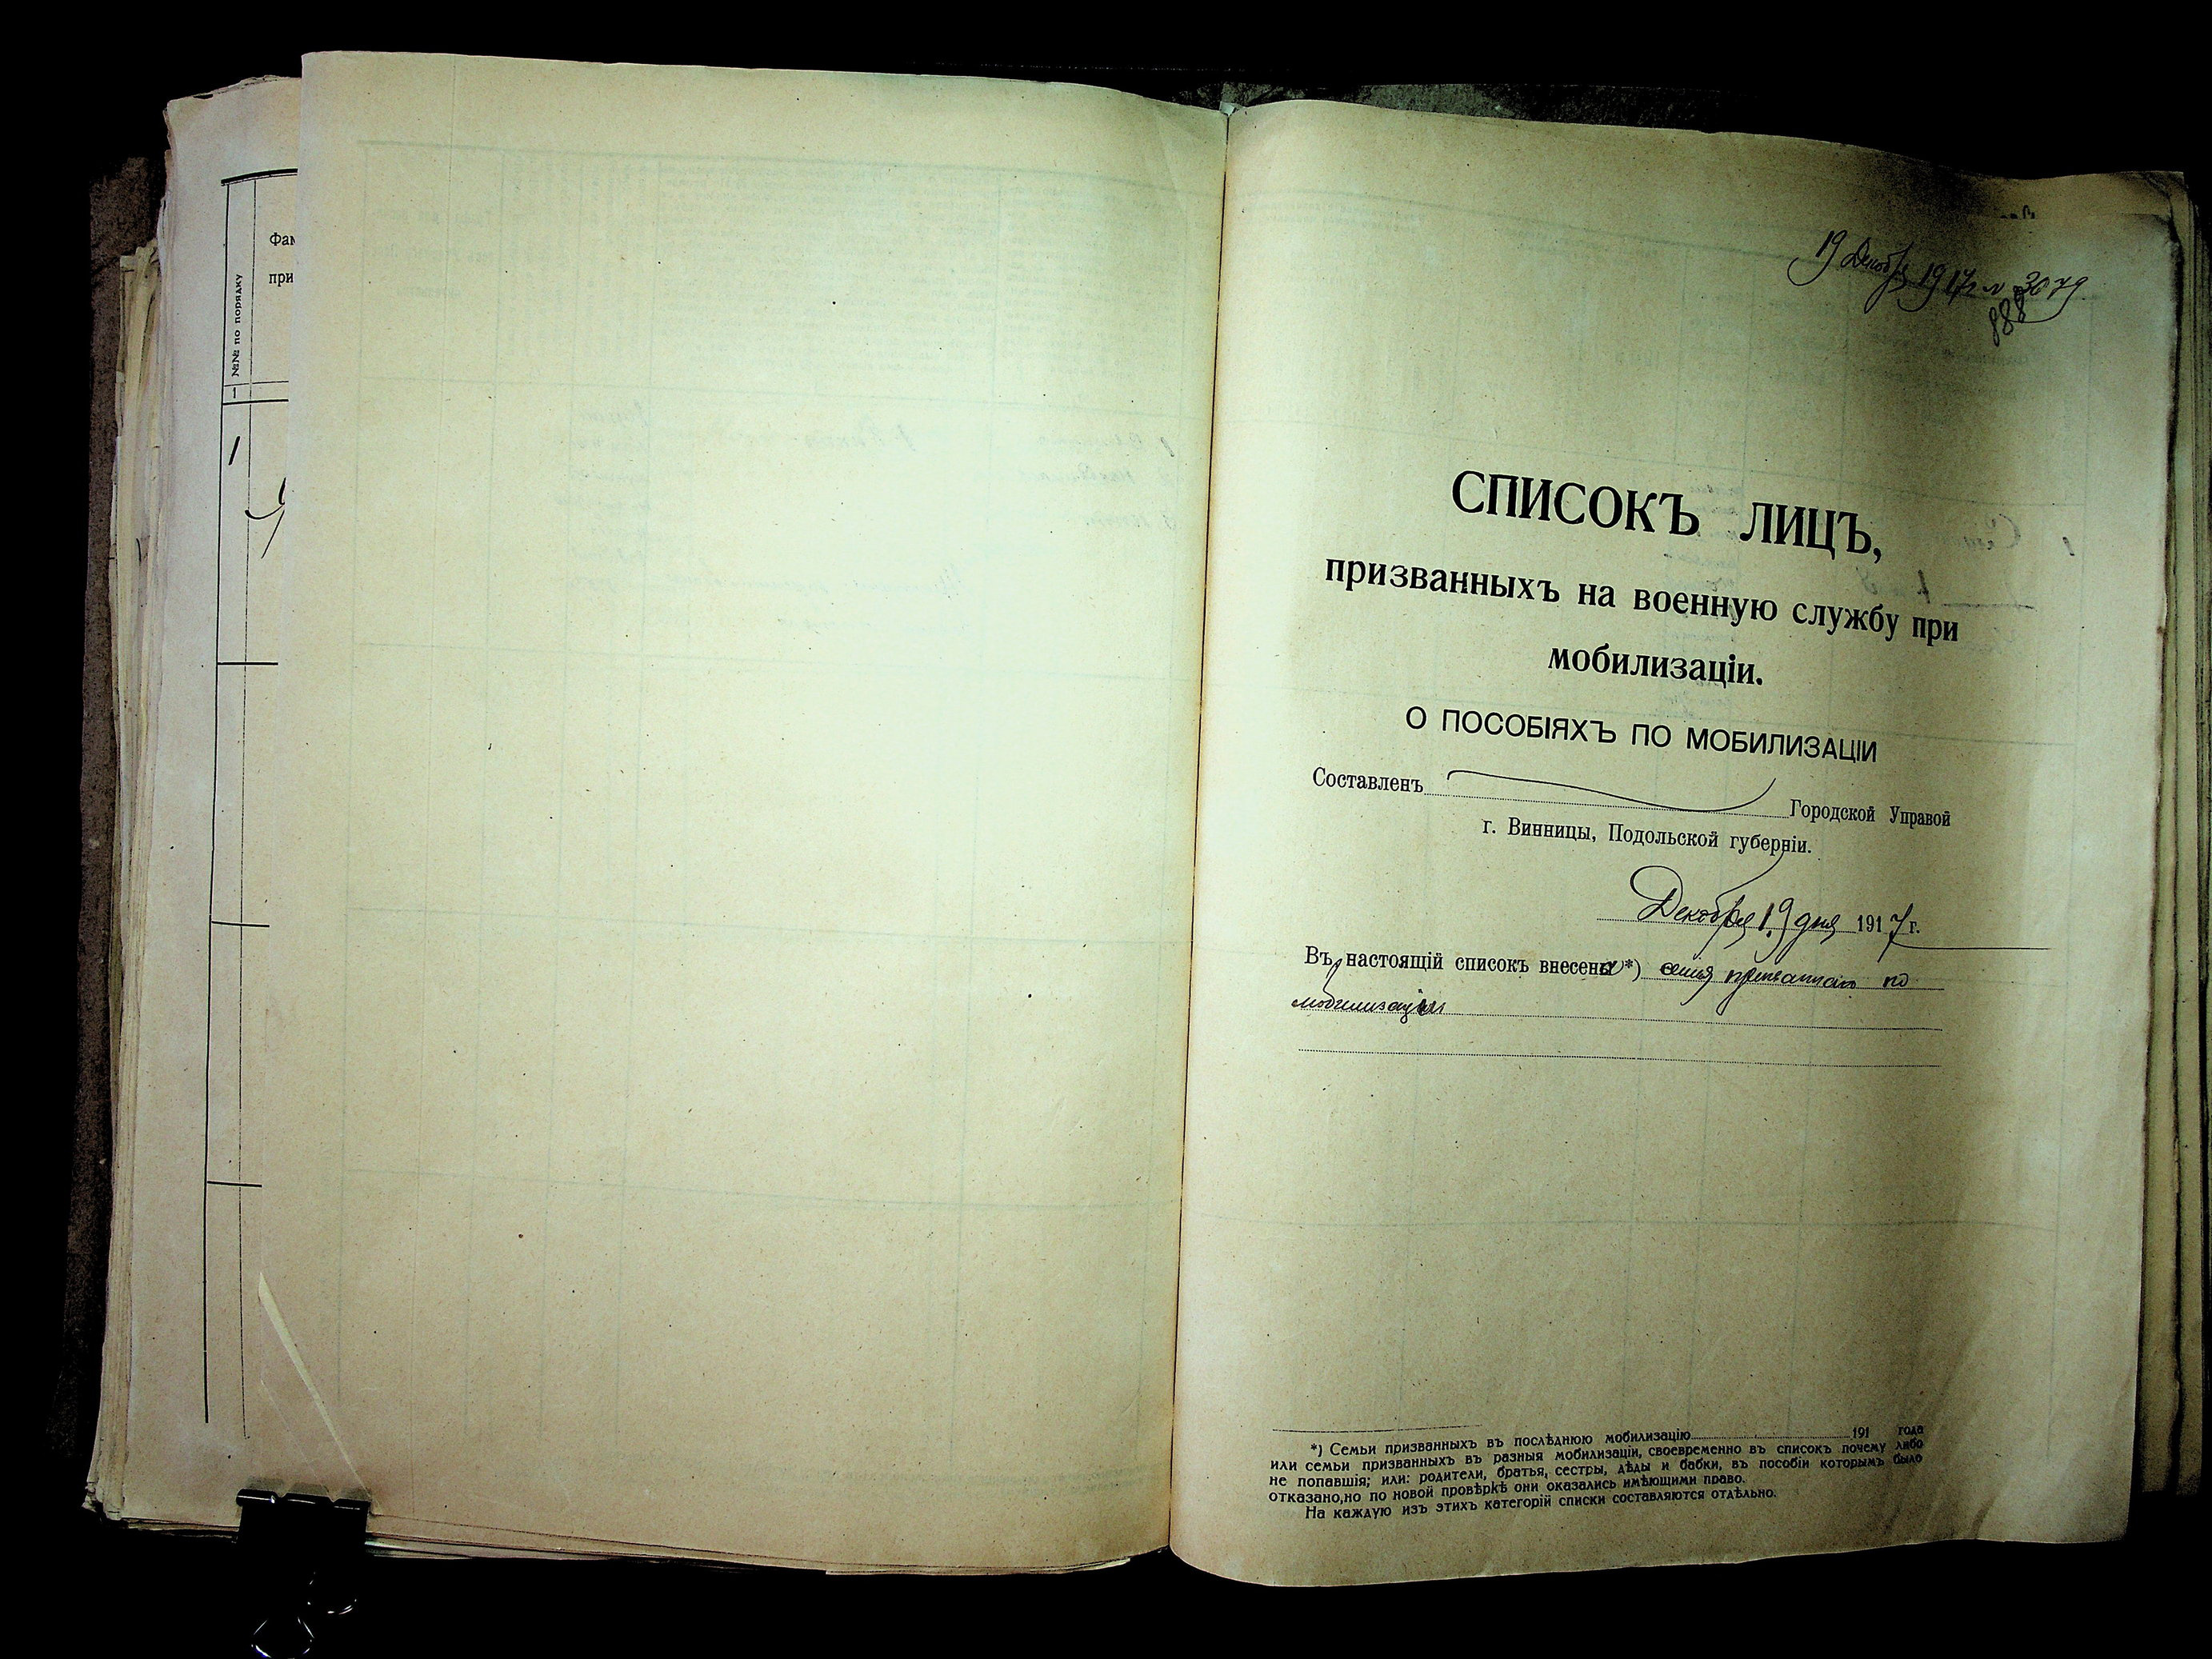 №№ по порядку
Фам
при
1
1
19 Декабр 1917 г. № 3079
888
СПИСОКЪ ЛИЦЪ,
призванныхъ на военную службу при
мобилизаціи.
О ПОСОБІЯХЪ ПО МОБИЛИЗАЦІИ
Составленъ Городской Управой
г. Винницы, Подольской губерніи.
Декабря 19 дня 1917 г.
Въ настоящій списокъ внесена*) семья призваннаго по
мобилизаціи
*) Семьи призванныхъ въ послѣднюю мобилизацію 191 года
или семьи призванныхъ въ разныя мобилизаціи, своевременно въ списокъ почему либо
не попавшія; или: родители, братья, сестры, дѣды и бабки, въ пособіи которымъ было
отказано,но по новой провѣркѣ они оказались имѣющими право.
На каждую изъ этихъ категорій списки составляются отдѣльно.